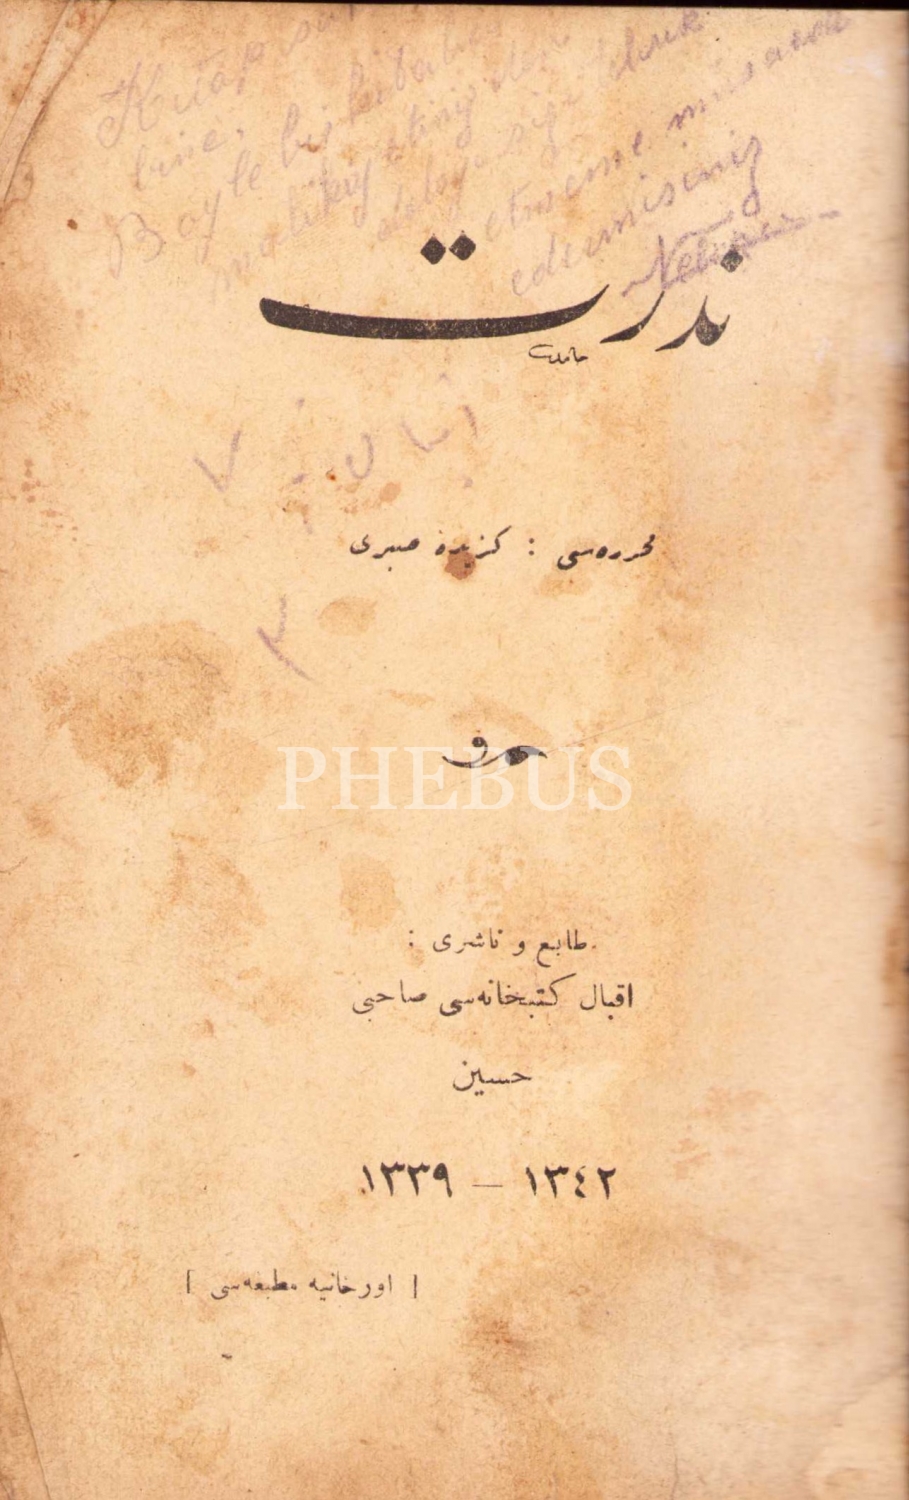 Kitap sa
bine,
Boyle bir kitaba
malikiyetiniz den
dolayı sizi tebrik
etmeme müsaade
edermisiniz
ندرت
حامد
محرره‌سی : كزیده صبری
PHEBUS
طابع و ناشری :
اقبال كتبخانه‌سی صاحبی
حسین
١٣٤٢ – ١٣٣٩
[ اورخانیه مطبعه‌سی ]